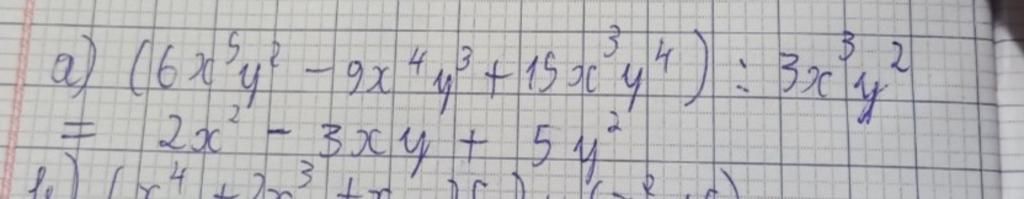 a) (6x⁵y² - 9x⁴y³ + 15x³y⁴) : 3x³y²
= 2x² - 3xy + 5y²